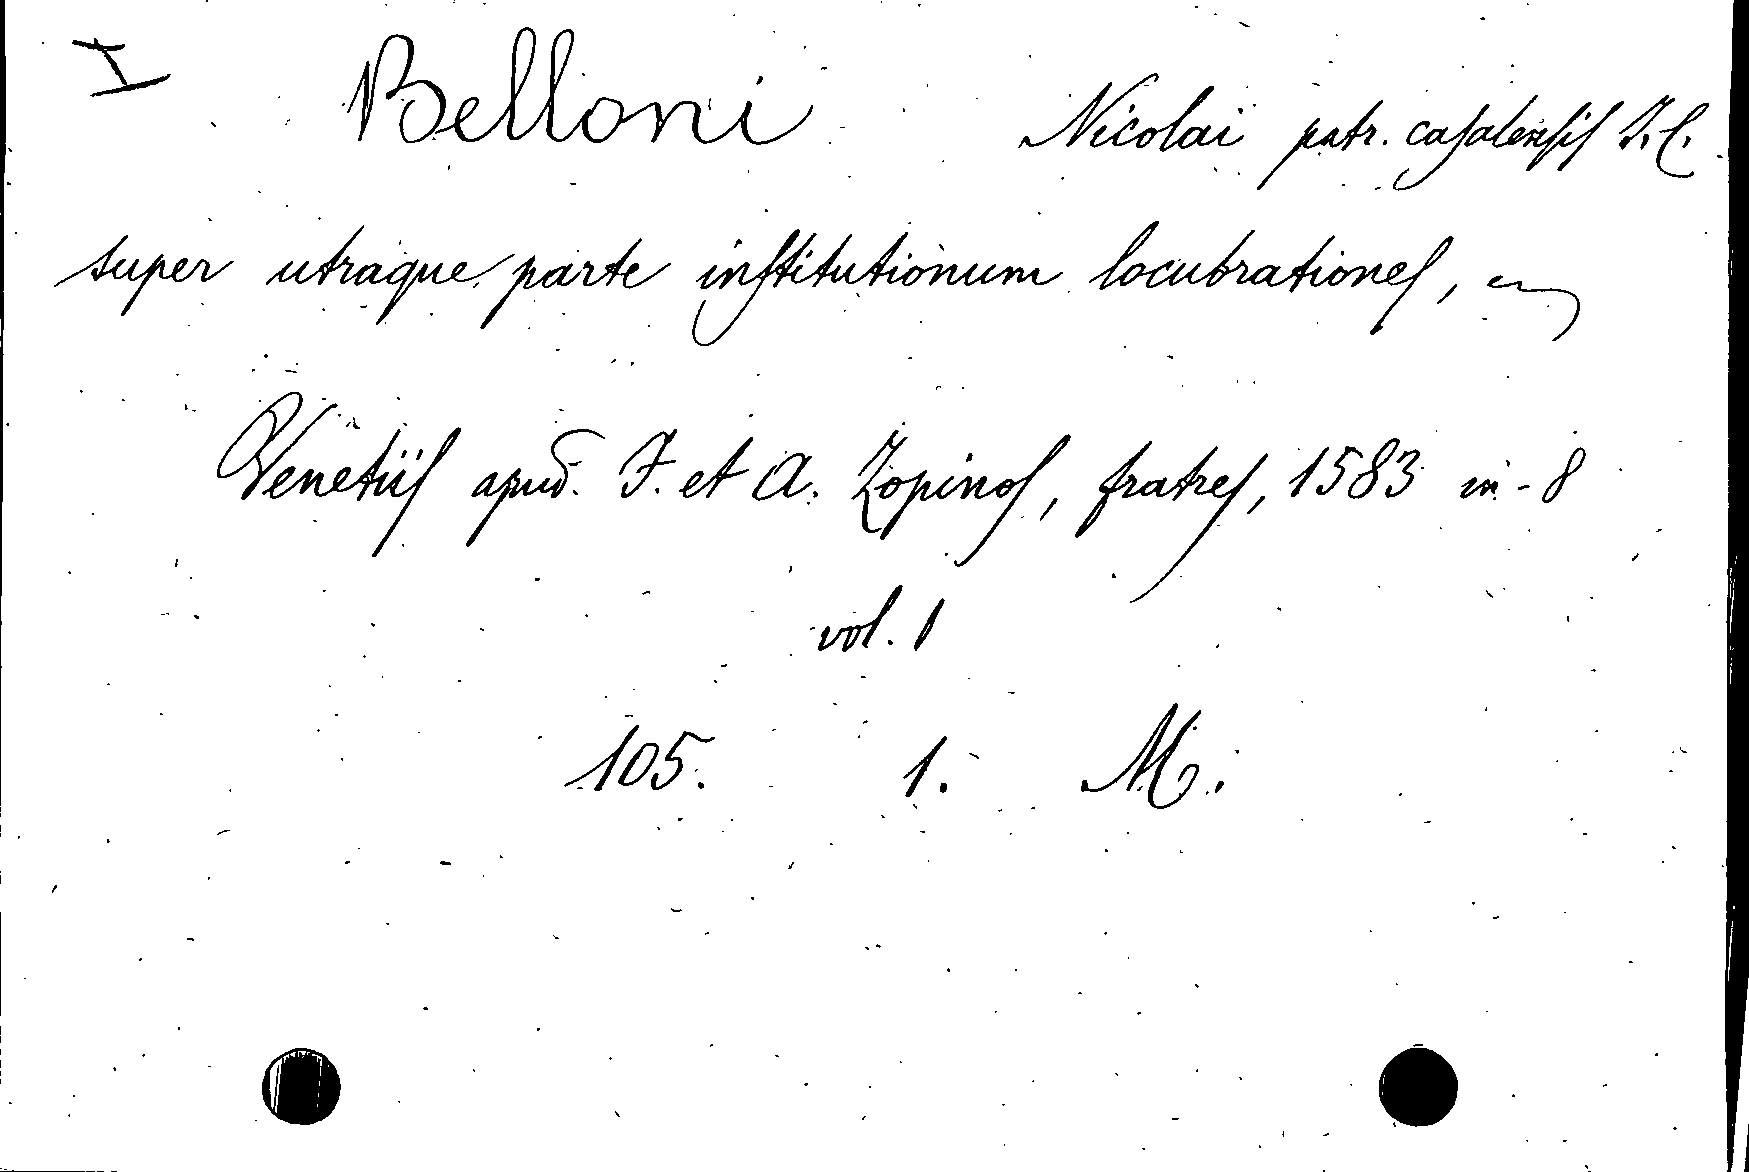 I Belloni Nicolai patr. casalensis I. C.
super utraque parte institutionum locubrationes,
Venetiis apud. F. et A. Zopinos, fratres, 1583 in-8
vol. 1
105. 1. M.